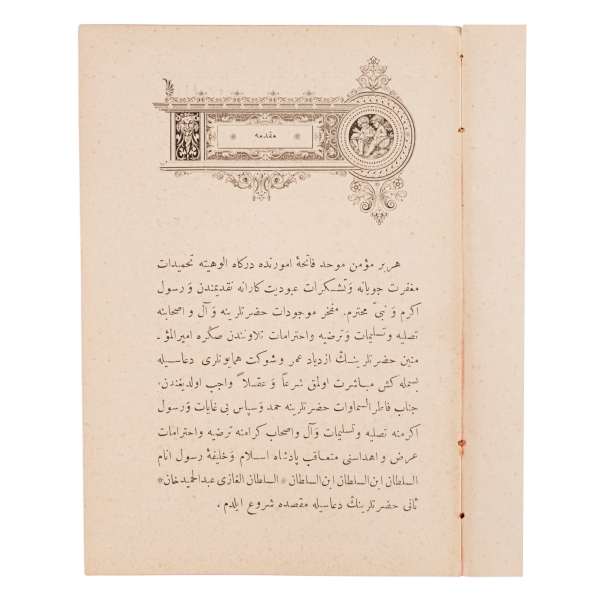 مقدمه
هر بر مؤمن موحد فاتحهٔ امورنده درکاه الوهیته تحمیدات
مغفرت جویانه و تشکرات عبودیت کارانه تقدیمندن و رسول
اکرم و نبی محترم، مفخر موجودات حضرتلرینه و آل و اصحابنه
تصلیه و تسلیمات و ترضیه و احترامات تلاوتندن صکره امیرالمؤ ـ
منین حضرتلرینڭ ازدیاد عمر و شوکت همایونلری دعاسیله
بسمله کش مباشرت اولمق شرعاً و عقلاً واجب اولدیغندن،
جناب فاطر السماوات حضرتلرینه حمد و سپاس بی غایات و رسول
اکرمنه تصلیه و تسلیمات و آل و اصحاب کرامنه ترضیه و احترامات
عرض و اهداسنی متعاقب پادشاه اسلام و خلیفهٔ رسول انام
السلطان ابن السلطان ابن السلطان * السلطان الغازی عبدالحمید خان *
ثانی حضرتلرینڭ دعاسیله مقصده شروع ایلدم .